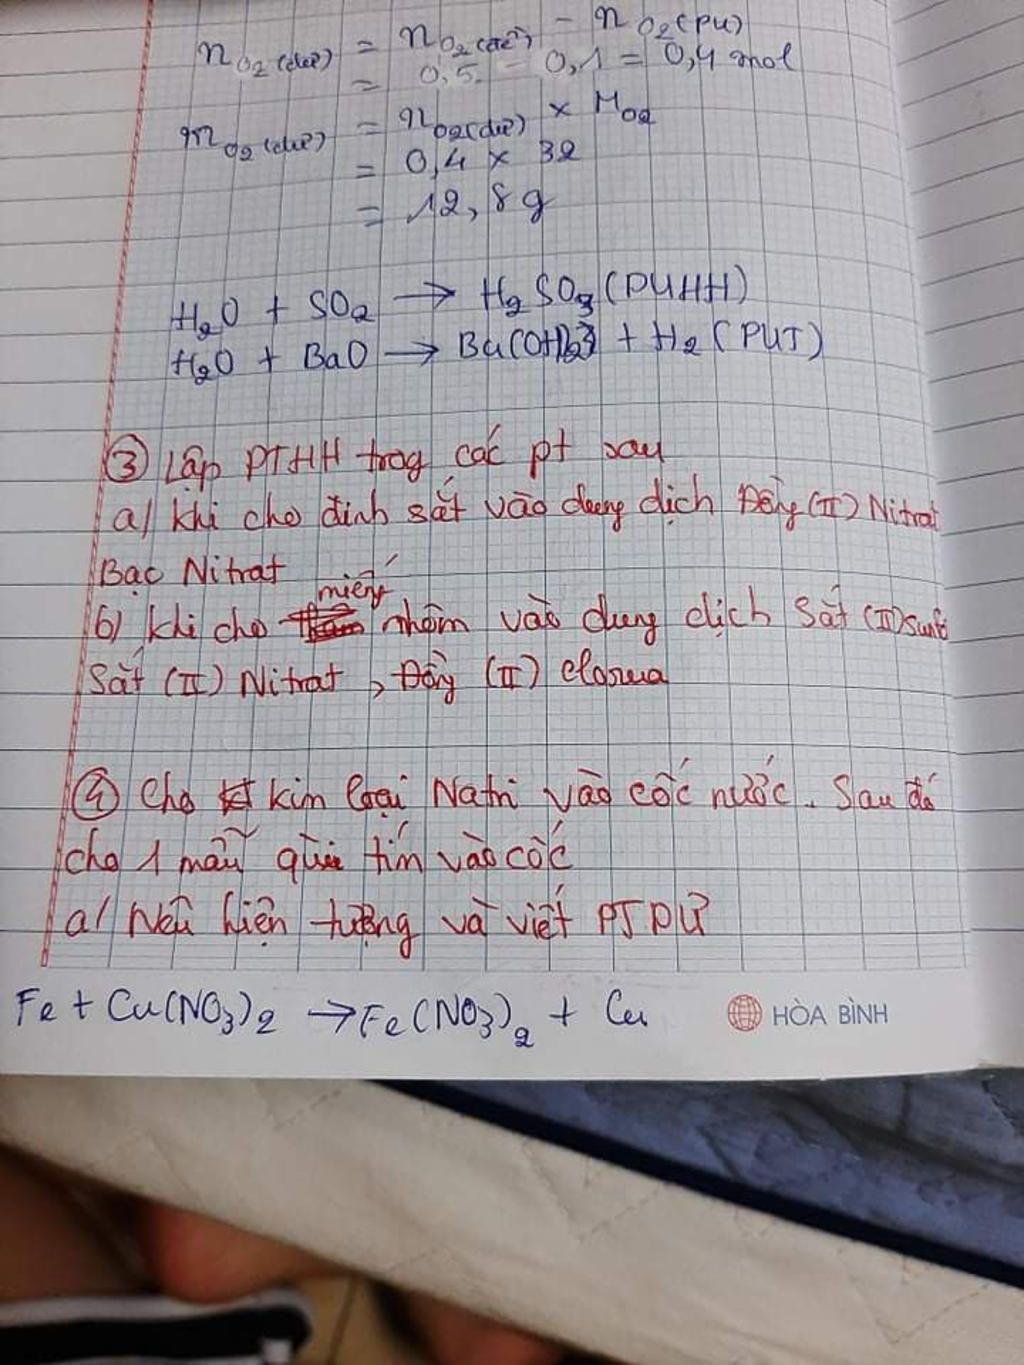 n O₂ (dư) = n O₂ (đề) - n O₂ (PU)
= 0,5 - 0,1 = 0,4 mol
m O₂ (dư) = n O₂ (dư) × M O₂
= 0,4 × 32
= 12,8 g
H₂O + SO₂ → H₂SO₃ (PUHH)
H₂O + BaO → Ba(OH)₂ + H₂ (PUT)
③ Lập PTHH trog các pt sau
a/ khi cho đinh sắt vào dung dịch Đồng (II) Nitrat
Bạc Nitrat
miếng
b) khi cho nhôm vào dung dịch Sắt (II) sunf
Sắt (II) Nitrat, Đồng (II) clorua
④ Cho kim loại Natri vào cốc nước. Sau đó
cho 1 mẫu quì tím vào cốc
a/ Nêu hiện tượng và viết PTPƯ
Fe + Cu(NO₃)₂ → Fe(NO₃)₂ + Cu
HÒA BÌNH